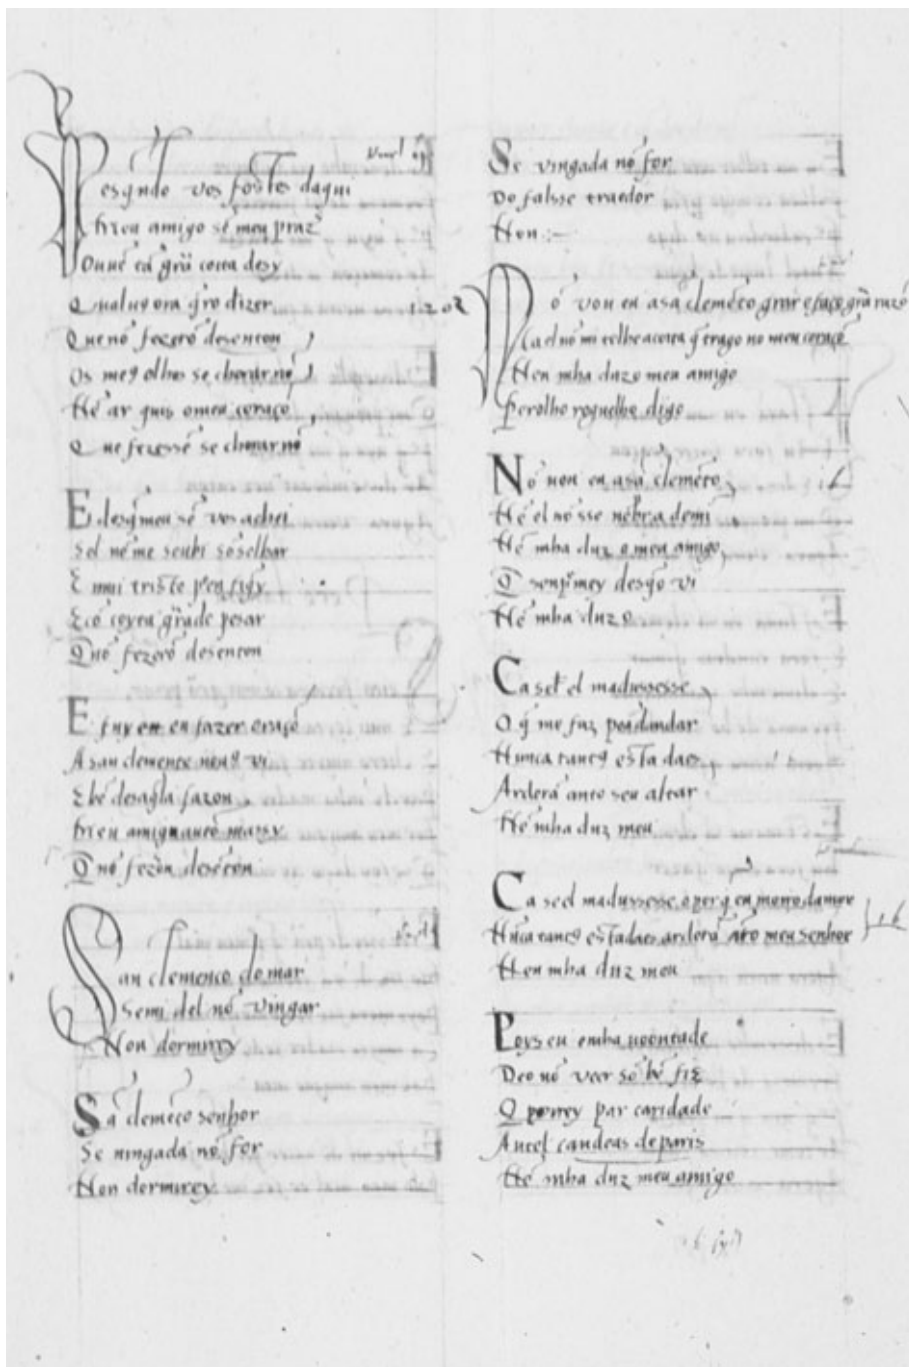 esq̄ndo vos fostes daqui
hireu amigo sē meu praz̄
Ouuē tā g̃ñ coita desy
Qualuꝰ ora q̃ro dizer
Que nō fezerō desenton
Os meꝯ olhos se chorar nō
Nē ar quis o meu coraçō
Que fezessē se chorar nō
E desq̃meu sē vos achei
Sol nē me soubi cōselhar
E mui triste
E cō coyta g̃ñde pesar
Q̃ nō fezerō desenton
E fuy eu fazer oraçō
A san clemente nō uꝯ vi
E bē des aq̃la sazon
Q̃ nō fezōn desētōn
San clemenço do mar
Se mi del nō vingar
Non dormirey
Sā clemēço senhor
Se uingada nō for
Non dormirey
Se vingada nō for
Do falsse traedor
Non :~
1202
Nō vou eu a sā clemēço orar e faço g̃rā razō
Ca el nō mi tolhe a coita q̃ trago no meu coraçō
Nen mha duz o meu amigo
Pero lho rogu e lho digo
Nō vou eu a sā clemēço
Nē el nō sse nēbra de mi
Nē mha duz o meu amigo
Q̄ senp̃ mey des q̃o vi
Nē mha duz o
Ca se el madussesse
O q̃ me faz pēādandar
Nunca tantꝯ estadaes
Arderā anto seu altar
Nē mha duz meu
Ca se el madussesse o per q̃ eu moiro damor
Nūca tantꝯ estadaes arderā āto meu senhor
Nen mha duz meu
Poys eu e mha uoontade
Deo nō veer sō bē fiz
Q̄ porrey par caridade
Antel candeas de paris
Nē mha duz meu amigo